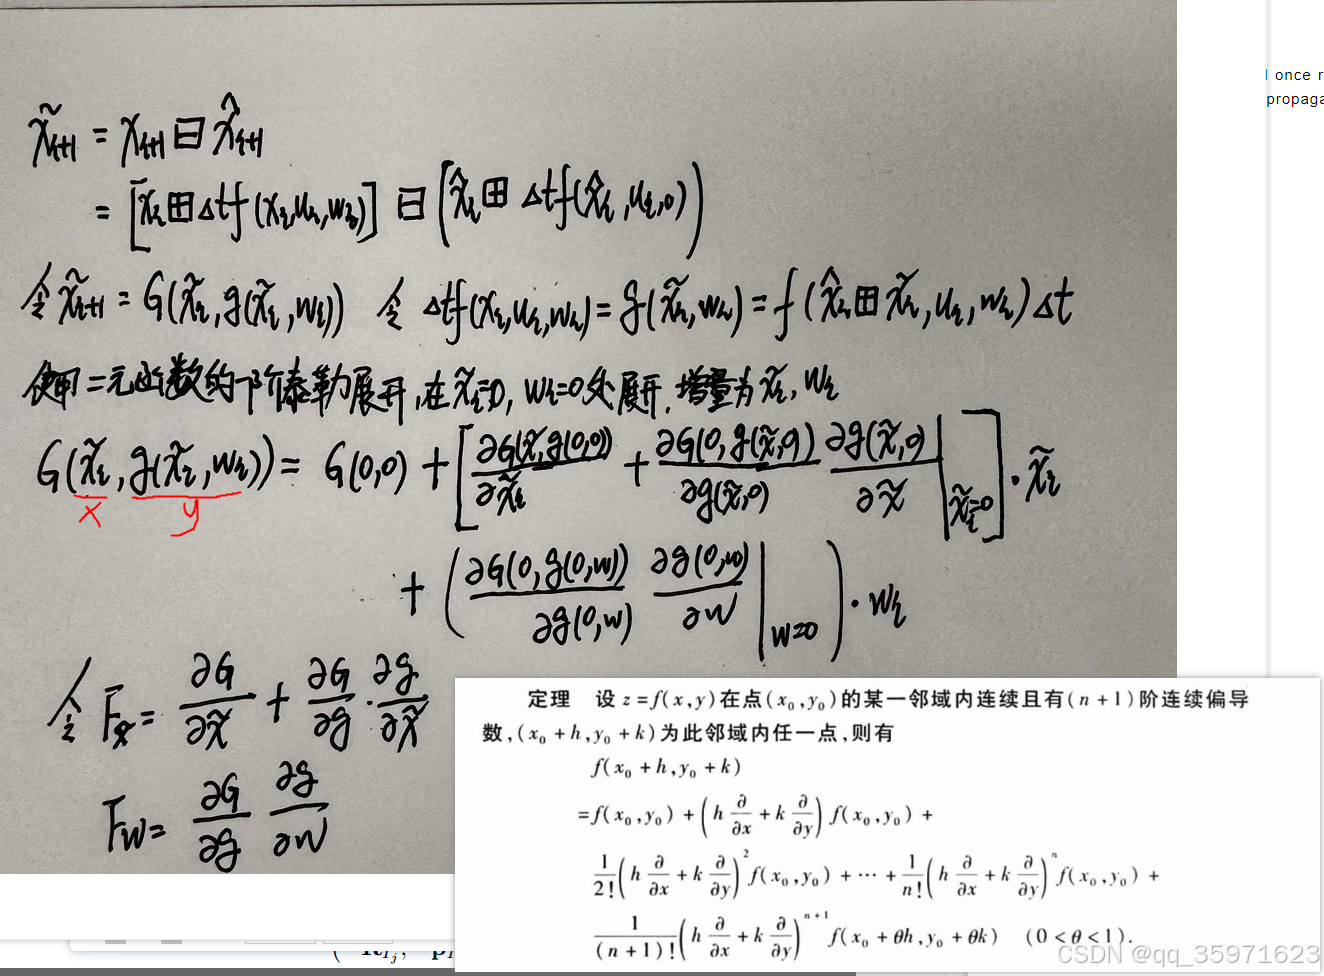 x̃ᵢ₊₁ = xᵢ₊₁ ⊟ x̂ᵢ₊₁
= [xᵢ ⊞ Δtf(xᵢ,uᵢ,wᵢ)] ⊟ (x̂ᵢ ⊞ Δtf(x̂ᵢ,uᵢ,0))
令 x̃ᵢ₊₁ = G(x̃ᵢ,g(x̃ᵢ,wᵢ)) 令 Δtf(xᵢ,uᵢ,wᵢ) = g(x̃ᵢ,wᵢ) = f(x̂ᵢ⊞x̃ᵢ,uᵢ,wᵢ)Δt
使用二元函数的一阶泰勒展开,在x̃ᵢ=0, wᵢ=0处展开,增量为x̃ᵢ,wᵢ
G(x̃ᵢ,g(x̃ᵢ,wᵢ)) = G(0,0) + [∂G(x̃,g(0,0))/∂x̃ᵢ + ∂G(0,g(x̃,0))/∂g(x̃,0) ∂g(x̃,0)/∂x̃ |x̃ᵢ=0]·x̃ᵢ
x y
+ (∂G(0,g(0,w))/∂g(0,w) ∂g(0,w)/∂w |w=0)·wᵢ
令 Fx̃ = ∂G/∂x̃ + ∂G/∂g · ∂g/∂x̃
Fw = ∂G/∂g ∂g/∂w
once r
propaga
定理 设 z = f(x,y)在点(x₀,y₀)的某一邻域内连续且有(n+1)阶连续偏导
数,(x₀+h,y₀+k)为此邻域内任一点,则有
f(x₀+h,y₀+k)
=f(x₀,y₀) + (h ∂/∂x + k ∂/∂y) f(x₀,y₀) +
1/2! (h ∂/∂x + k ∂/∂y)² f(x₀,y₀) + ⋯ + 1/n! (h ∂/∂x + k ∂/∂y)ⁿ f(x₀,y₀) +
1/(n+1)! (h ∂/∂x + k ∂/∂y)ⁿ⁺¹ f(x₀+θh,y₀+θk) (0<θ<1).
CSDN @qq_35971623